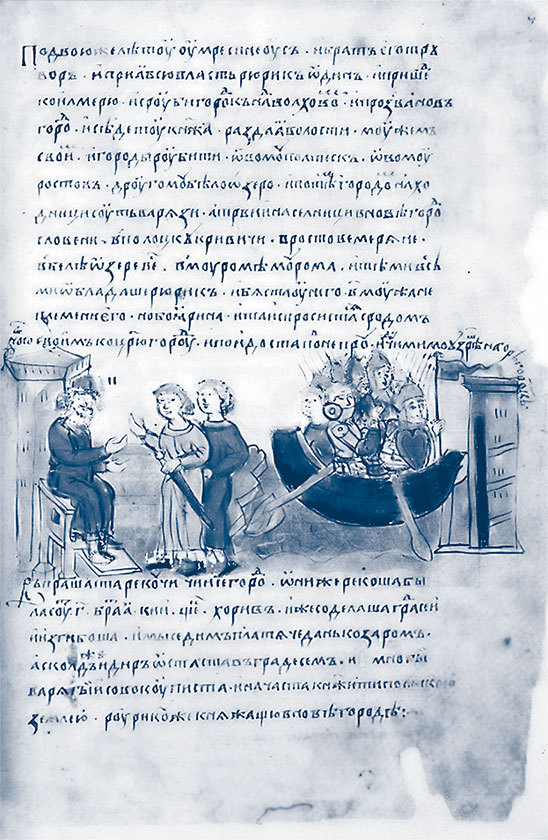 Подвоюжелѣтоу оумресинеоусъ · ибратъ еготрꙋ
воръ · иприѧвсювласть рюрикъ ѡдинъ · ипришеⷣ
коилмерю · исроубигороⷣкънаⷣволховоⷨ · ипрозвановъ
гороⷣ · исѣдетоу кнѧжа · раздааволости · моужемъ
своиⷨ · игородыроубити · ѡвомоу полтискъ · ѡвомоу
ростовъ · дроугомоу бѣлоѡзеро · ипотѣⷨ городоⷨ нахо
дници соуть варѧзи · апръвиинаселници вновѣгороⷣ
словени · вполоцкъ кривичи · вростове мерѧне ·
вбелеѡзере веⷭ · вмоуроме моурома · итеми всѣ
миѡбладаше рюрикъ · ибѧстаоунего · в҃ моужане
племени его · нобоꙗрина · итаиспросистасѧ сродомъ
своимъ коцрⷭюгороⷣу · ипоидоста понепрꙋ · идꙋчимимо
въпрашаста рекочи чиисегороⷣ · ѡнижерекоша бы
ласоуⷮ · г҃ · браⷮꙗ · кии · щеⷦ · хоривъ · ижесоделаша граⷣсеи
иизгибоша · имыседимъ платѧче данькозаромъ ·
асколдъжеидиръ ѡстаставъградесемъ · и многы
варѧгы совокоуписта · иначаста кнѧжити польскою
землею · роурикоуже кнѧжащювновѣгородѣ :·